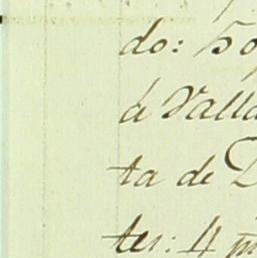 do: 50
á Valla
ta de D
tes: 4 m